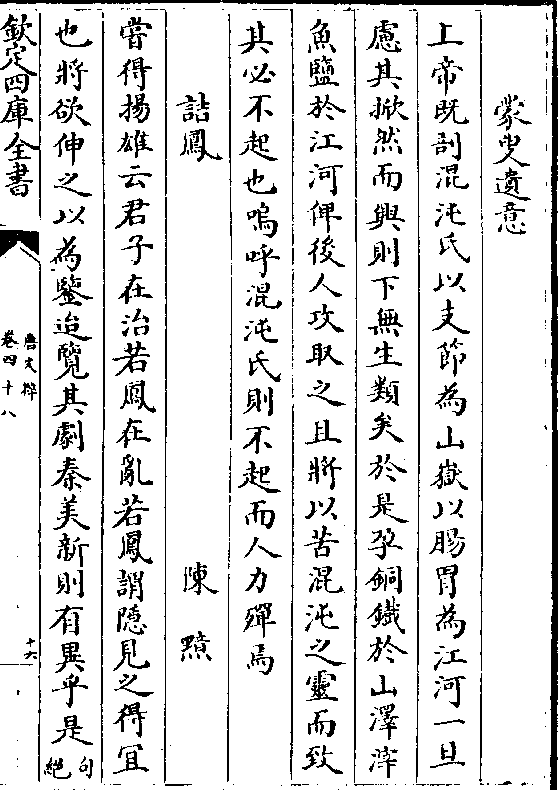 蒙叟遺意
上帝既剖混沌氏以支節為山嶽以腸胃為江河一旦
慮其掀然而興則下無生類矣於是孕銅鐵於山澤滓
魚鹽於江河俾後人攻取之且將以苦混沌之靈而致
其必不起也嗚呼混沌氏則不起而人力殫焉
詰鳳 陳黯
嘗得揚雄云君子在治若鳳在亂若鳳謂隱見之得宜
也將欲伸之以為鑒迨覽其劇秦美新則有異乎是絕句
欽定四庫全書
唐文粹
卷四十八
十六